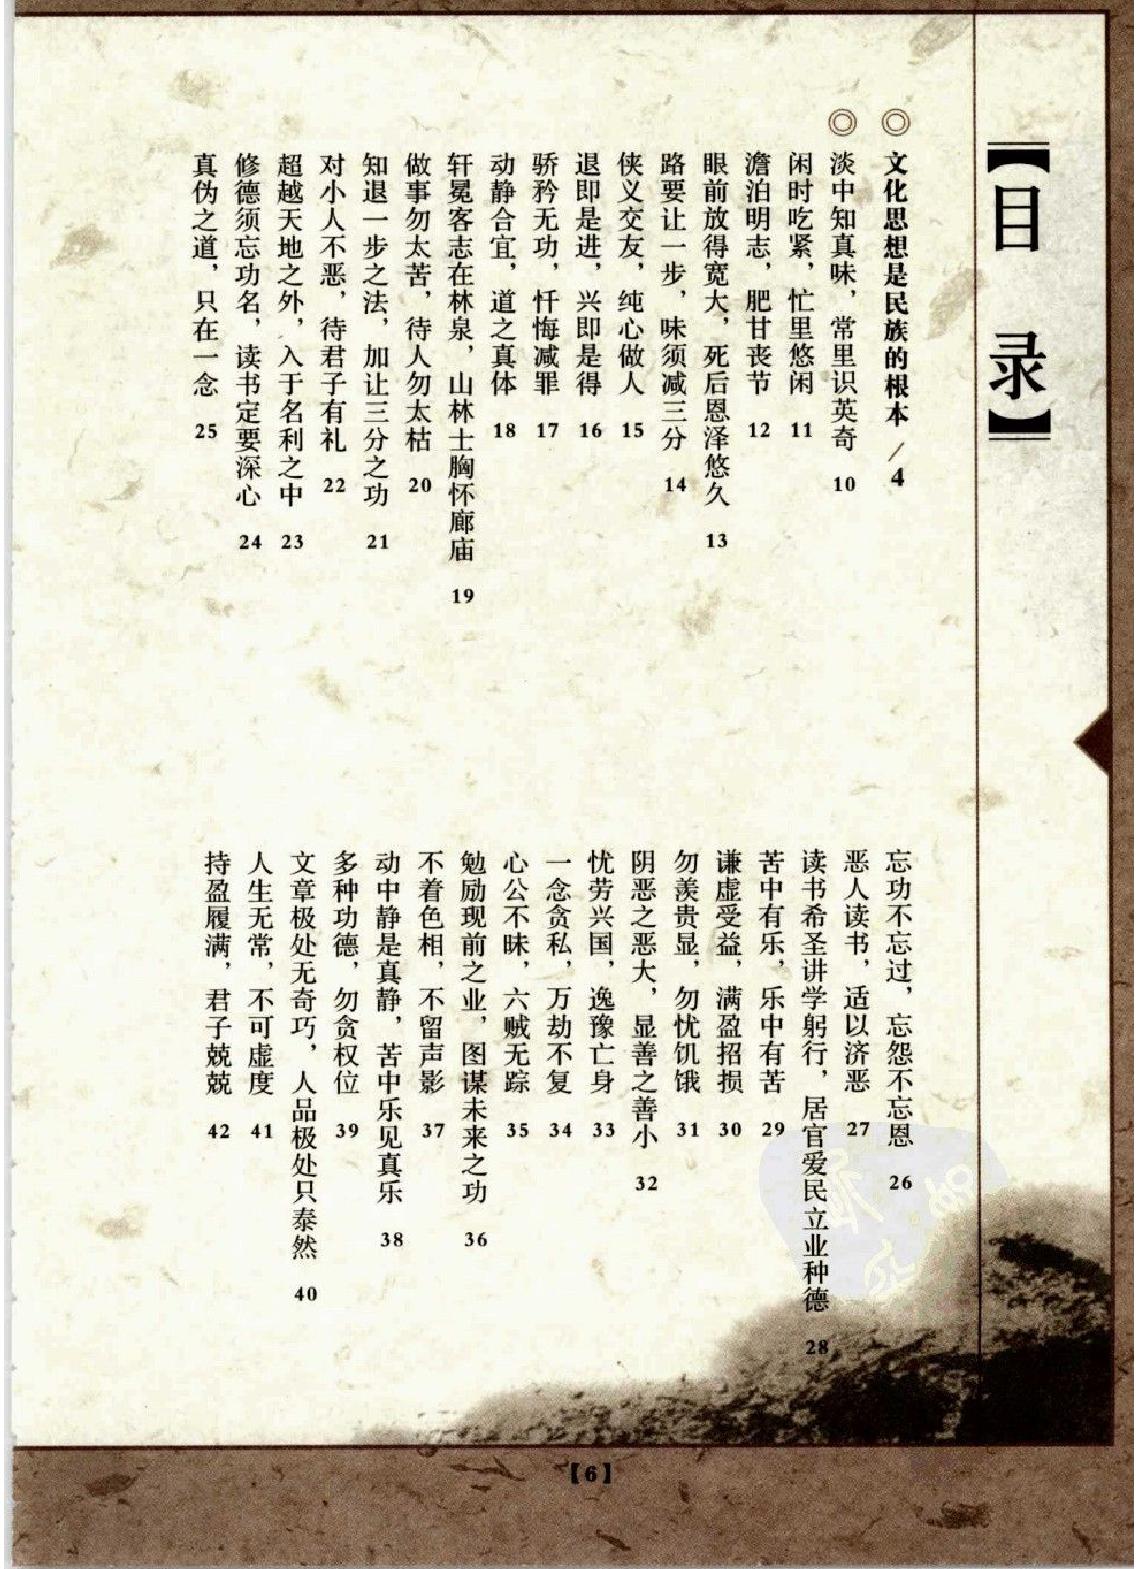 【目 录】
◎ 文化思想是民族的根本 / 4
◎ 淡中知真味，常里识英奇 10
闲时吃紧，忙里悠闲 11
澹泊明志，肥甘丧节 12
眼前放得宽大，死后恩泽悠久 13
路要让一步，味须减三分 14
侠义交友，纯心做人 15
退即是进，兴即是得 16
骄矜无功，忏悔减罪 17
动静合宜，道之真体 18
轩冕客志在林泉，山林士胸怀廊庙 19
做事勿太苦，待人勿太枯 20
知退一步之法，加让三分之功 21
对小人不恶，待君子有礼 22
超越天地之外，入于名利之中 23
修德须忘功名，读书定要深心 24
真伪之道，只在一念 25
忘功不忘过，忘怨不忘恩 26
恶人读书，适以济恶 27
读书希圣讲学躬行，居官爱民立业种德 28
苦中有乐，乐中有苦 29
谦虚受益，满盈招损 30
勿羡贵显，勿忧饥饿 31
阴恶之恶大，显善之善小 32
忧劳兴国，逸豫亡身 33
一念贪私，万劫不复 34
心公不昧，六贼无踪 35
勉励现前之业，图谋未来之功 36
不着色相，不留声影 37
动中静是真静，苦中乐见真乐 38
多种功德，勿贪权位 39
文章极处无奇巧，人品极处只泰然 40
人生无常，不可虚度 41
持盈履满，君子兢兢 42
【6】